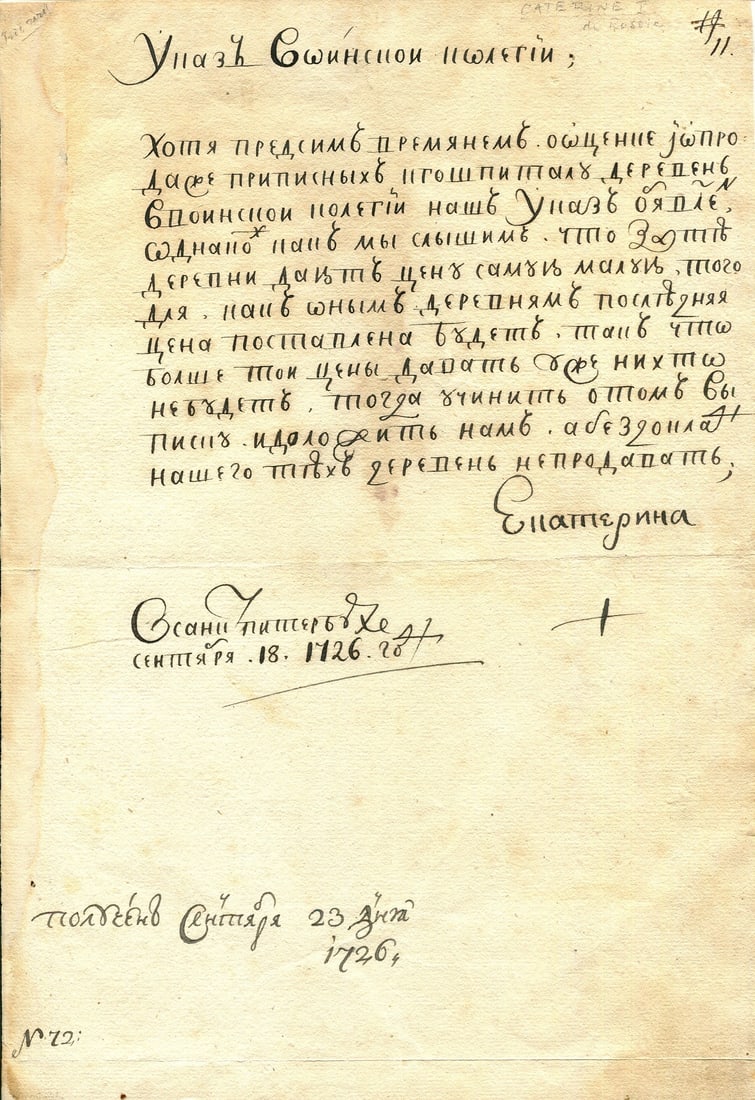 CATERINE I
de Russie
11.
Указъ Воинскои колегіи;
Хотя предсимъ времянемъ. оѡцение іѡпро-
даже приписныхъ кгошпиталу деревень
Ввоинскои колегіи нашъ Указъ обявлен
ѡднакож какъ мы слышимъ. что Затѣ
деревни даютъ цену самую малую, того
для, какъ ѡнымъ деревнямъ послѣдняя
цена поставлена будетъ, такъ что
болше тои цены давать уже нихто
небудетъ, тогда учинить отомъ вы
писку. идоложить намъ. абездокла
нашего тѣхъ деревень непродавать;
Екатерина
Всанктпитербурхе
сентября. 18. 1726. го
полученъ Сентября 23 дня
1726,
№ 72: